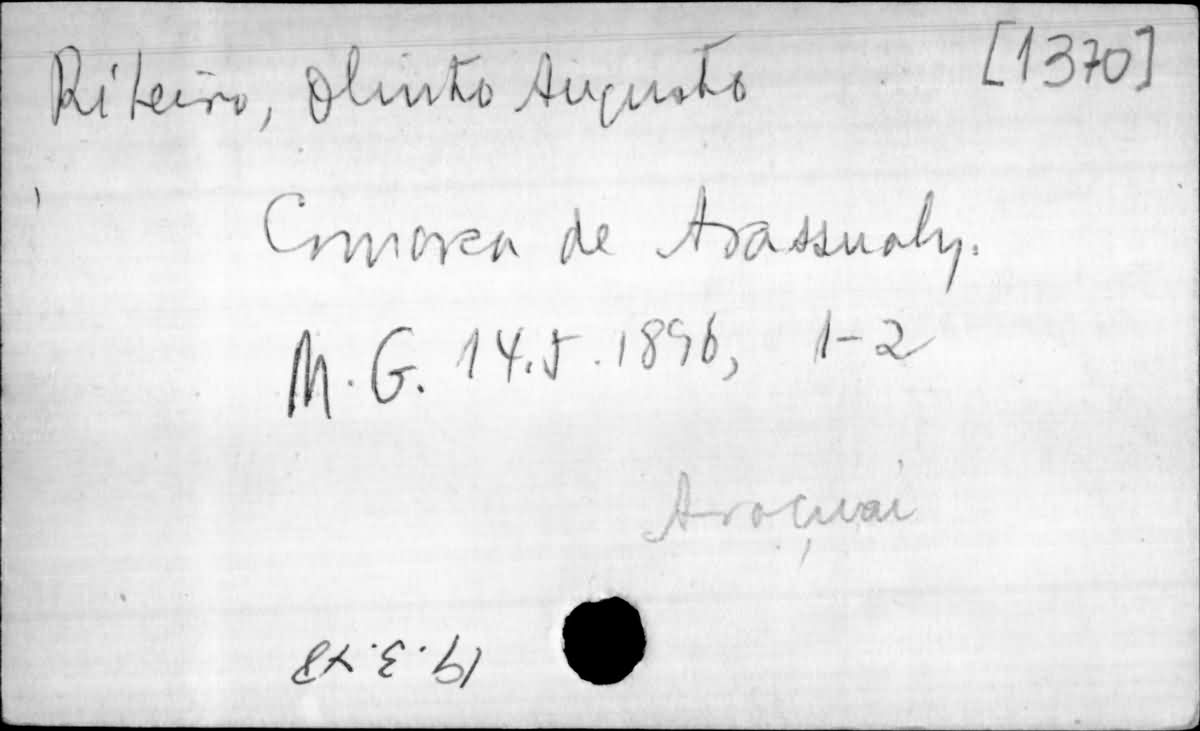 Ribeiro, Olinto Augusto [1370]
Comarca de Arassuahy.
M. G. 14.5.1896, 1-2
Araçuaí
19.3.48